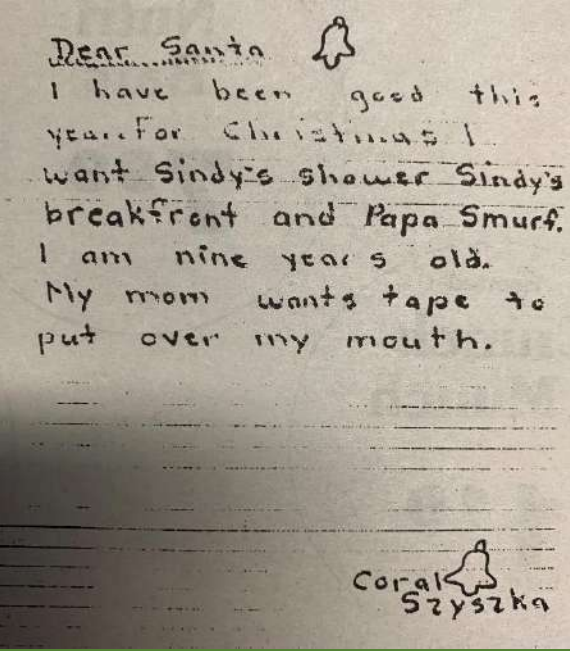 Dear Santa
I have been good this
year. For Christmas I
want Sindy's shower Sindy's
breakfront and Papa Smurf.
I am nine years old.
My mom wants tape to
put over my mouth.
Coral
Szyszka